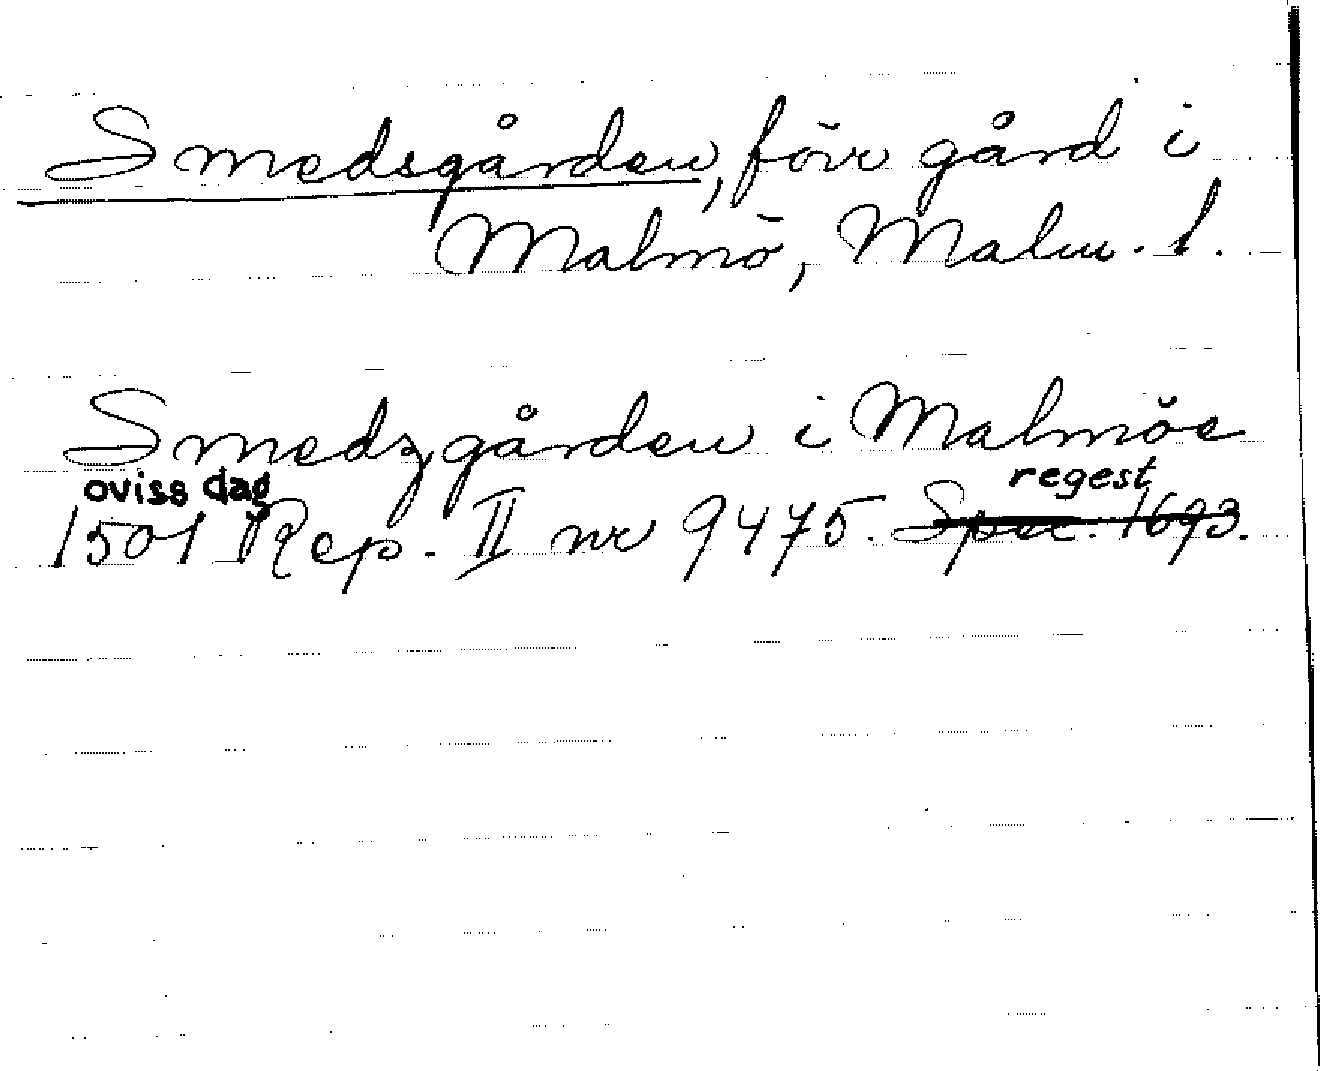 Smedsgården, förr gård i
Malmö, Malm. l.
Smedzgården i Malmöe
oviss dag regest
1501 Rep. II nr 9475. Spec. 1693.